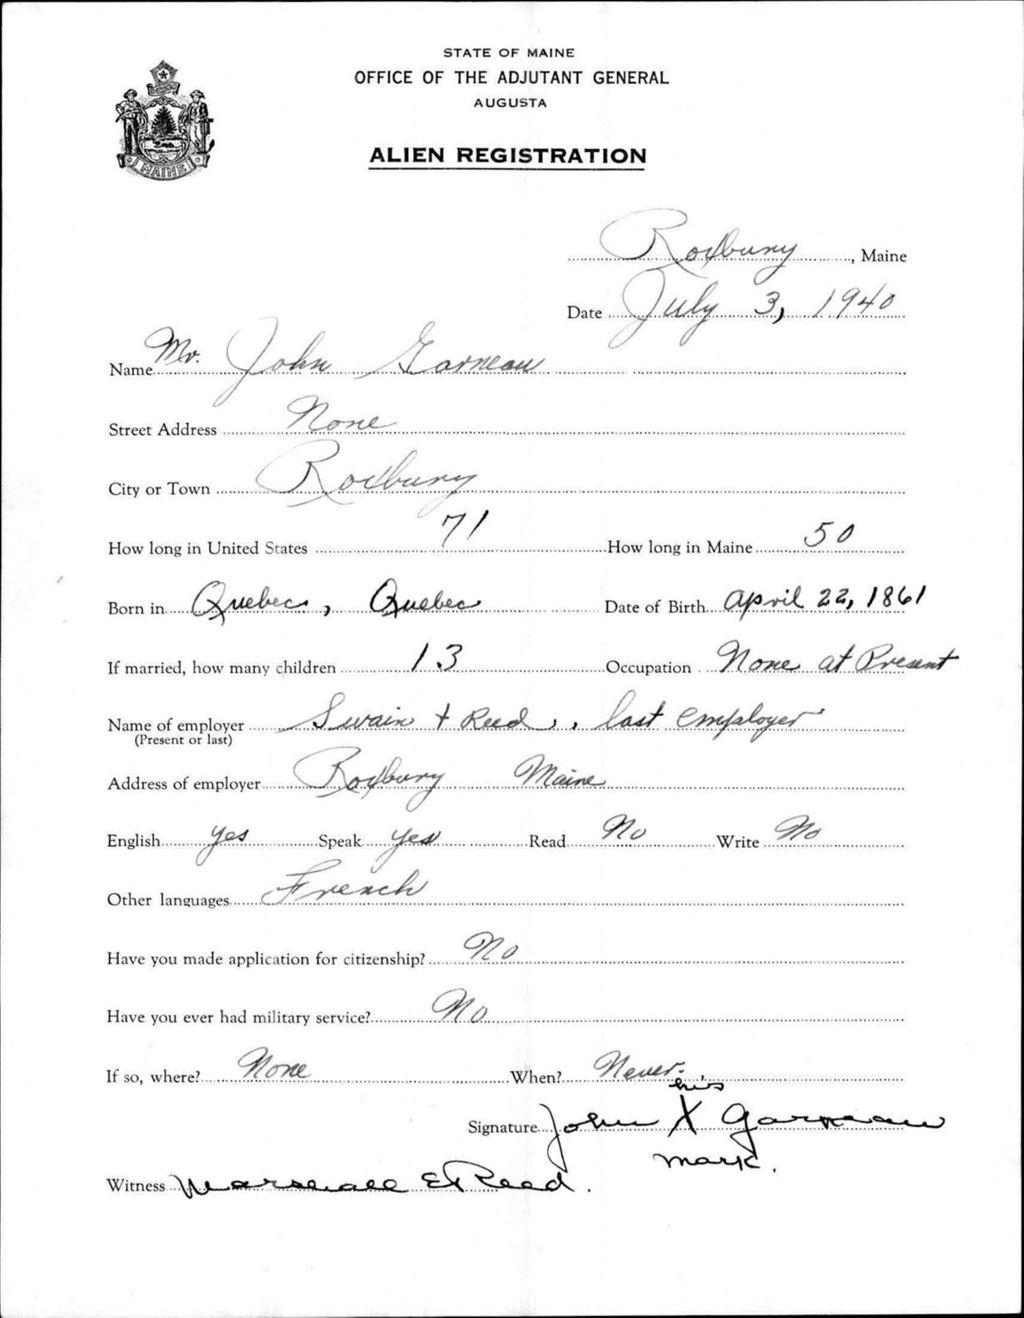 STATE OF MAINE
OFFICE OF THE ADJUTANT GENERAL
AUGUSTA
ALIEN REGISTRATION
MAINE
Roxbury, Maine
Date July 3, 1940
Name Mr. John Garneau
Street Address None
City or Town Roxbury
How long in United States 71 How long in Maine 50
Born in Quebec, Quebec Date of Birth April 22, 1861
If married, how many children 13 Occupation None at Present
Name of employer Swain + Reed, , last employer
(Present or last)
Address of employer Roxbury Maine
English Yes Speak Yes Read No Write No
Other languages French
Have you made application for citizenship? No
Have you ever had military service? No
If so, where? None When? Never.
his
Signature John X Garneau
mark.
Witness Marshall E Reed.